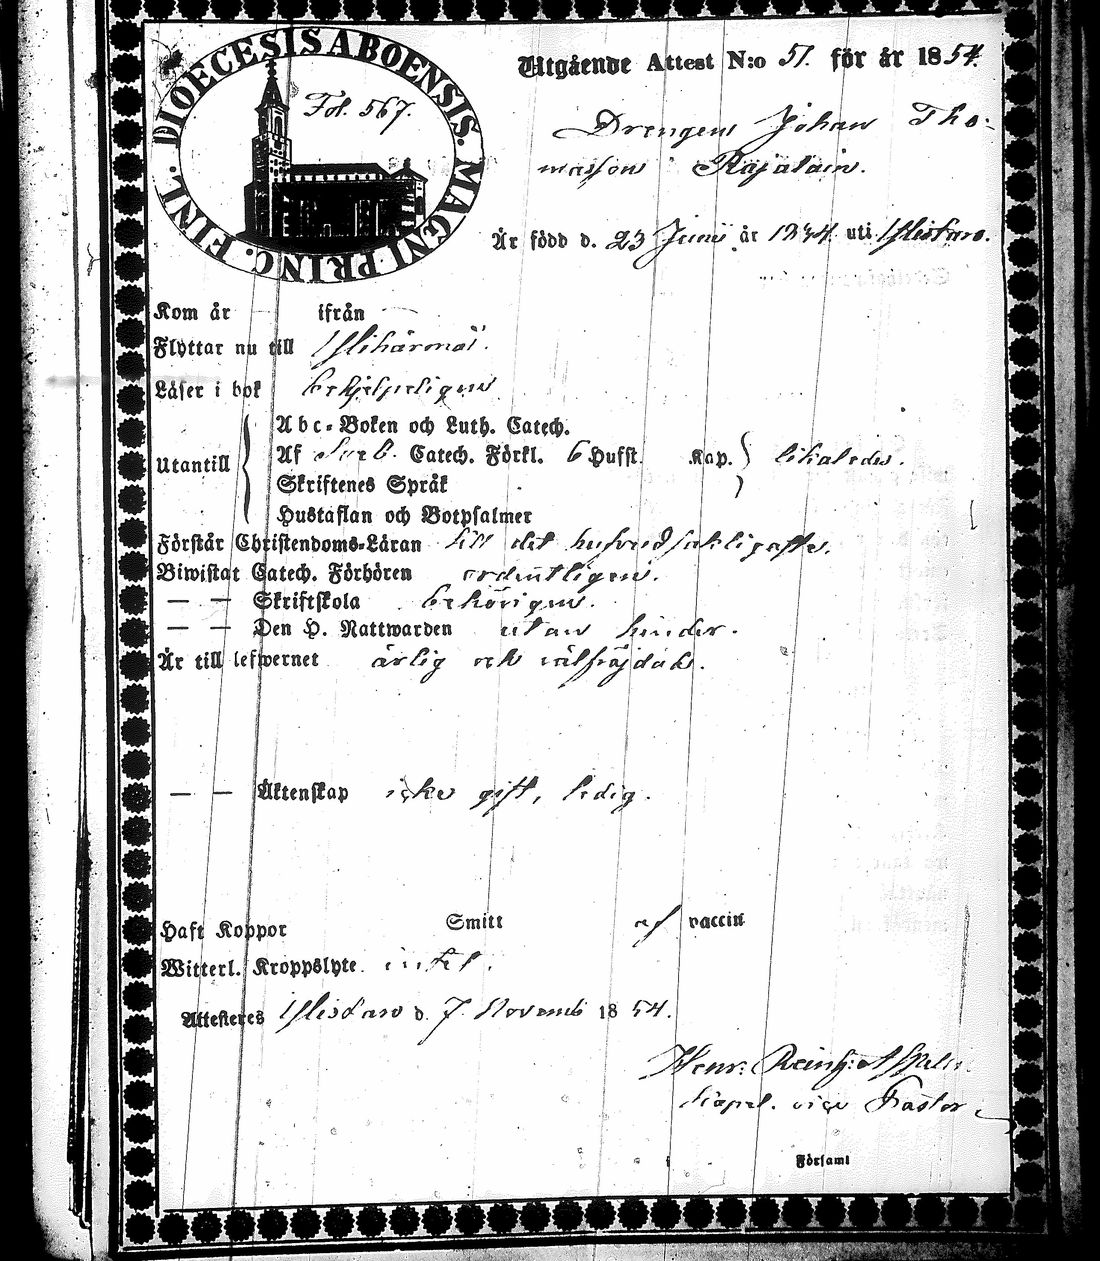 DIOECESIS ABOENSIS. MAGNI PRINC. FINL.
Fol. 567.
Utgående Attest N:o 51. för år 1854.
Drengen Johan Tho-
masson Rajalain.
Är född d. 23 Junii år 1834 uti Ylistaro.
Kom år — ifrån —
Flyttar nu till Ylihärmä.
Läser i bok behjelpeligen
Utantill
Abc-Boken och Luth. Catech.
Af Sveb. Catech. Förkl. 6 Hufst. Kap. likaledes.
Skriftenes Språk
Hustaflan och Botpsalmer
Förstår Christendoms-Läran till det hufvudsakligaste.
Biwistat Catech. Förhören ordentligen.
— — Skriftskola behörigen.
— — Den H. Nattwarden utan hinder.
Är till lefwernet ärlig och välfräjdad.
— — Äktenskap icke gift, ledig.
Haft Koppor Smitt af vaccin
Witterl. Kroppslyte intet.
Attesteres Ylistaro d. 7 Novemb 1854.
Henr: Reinh:
Kapel. vice Pastor
Församl